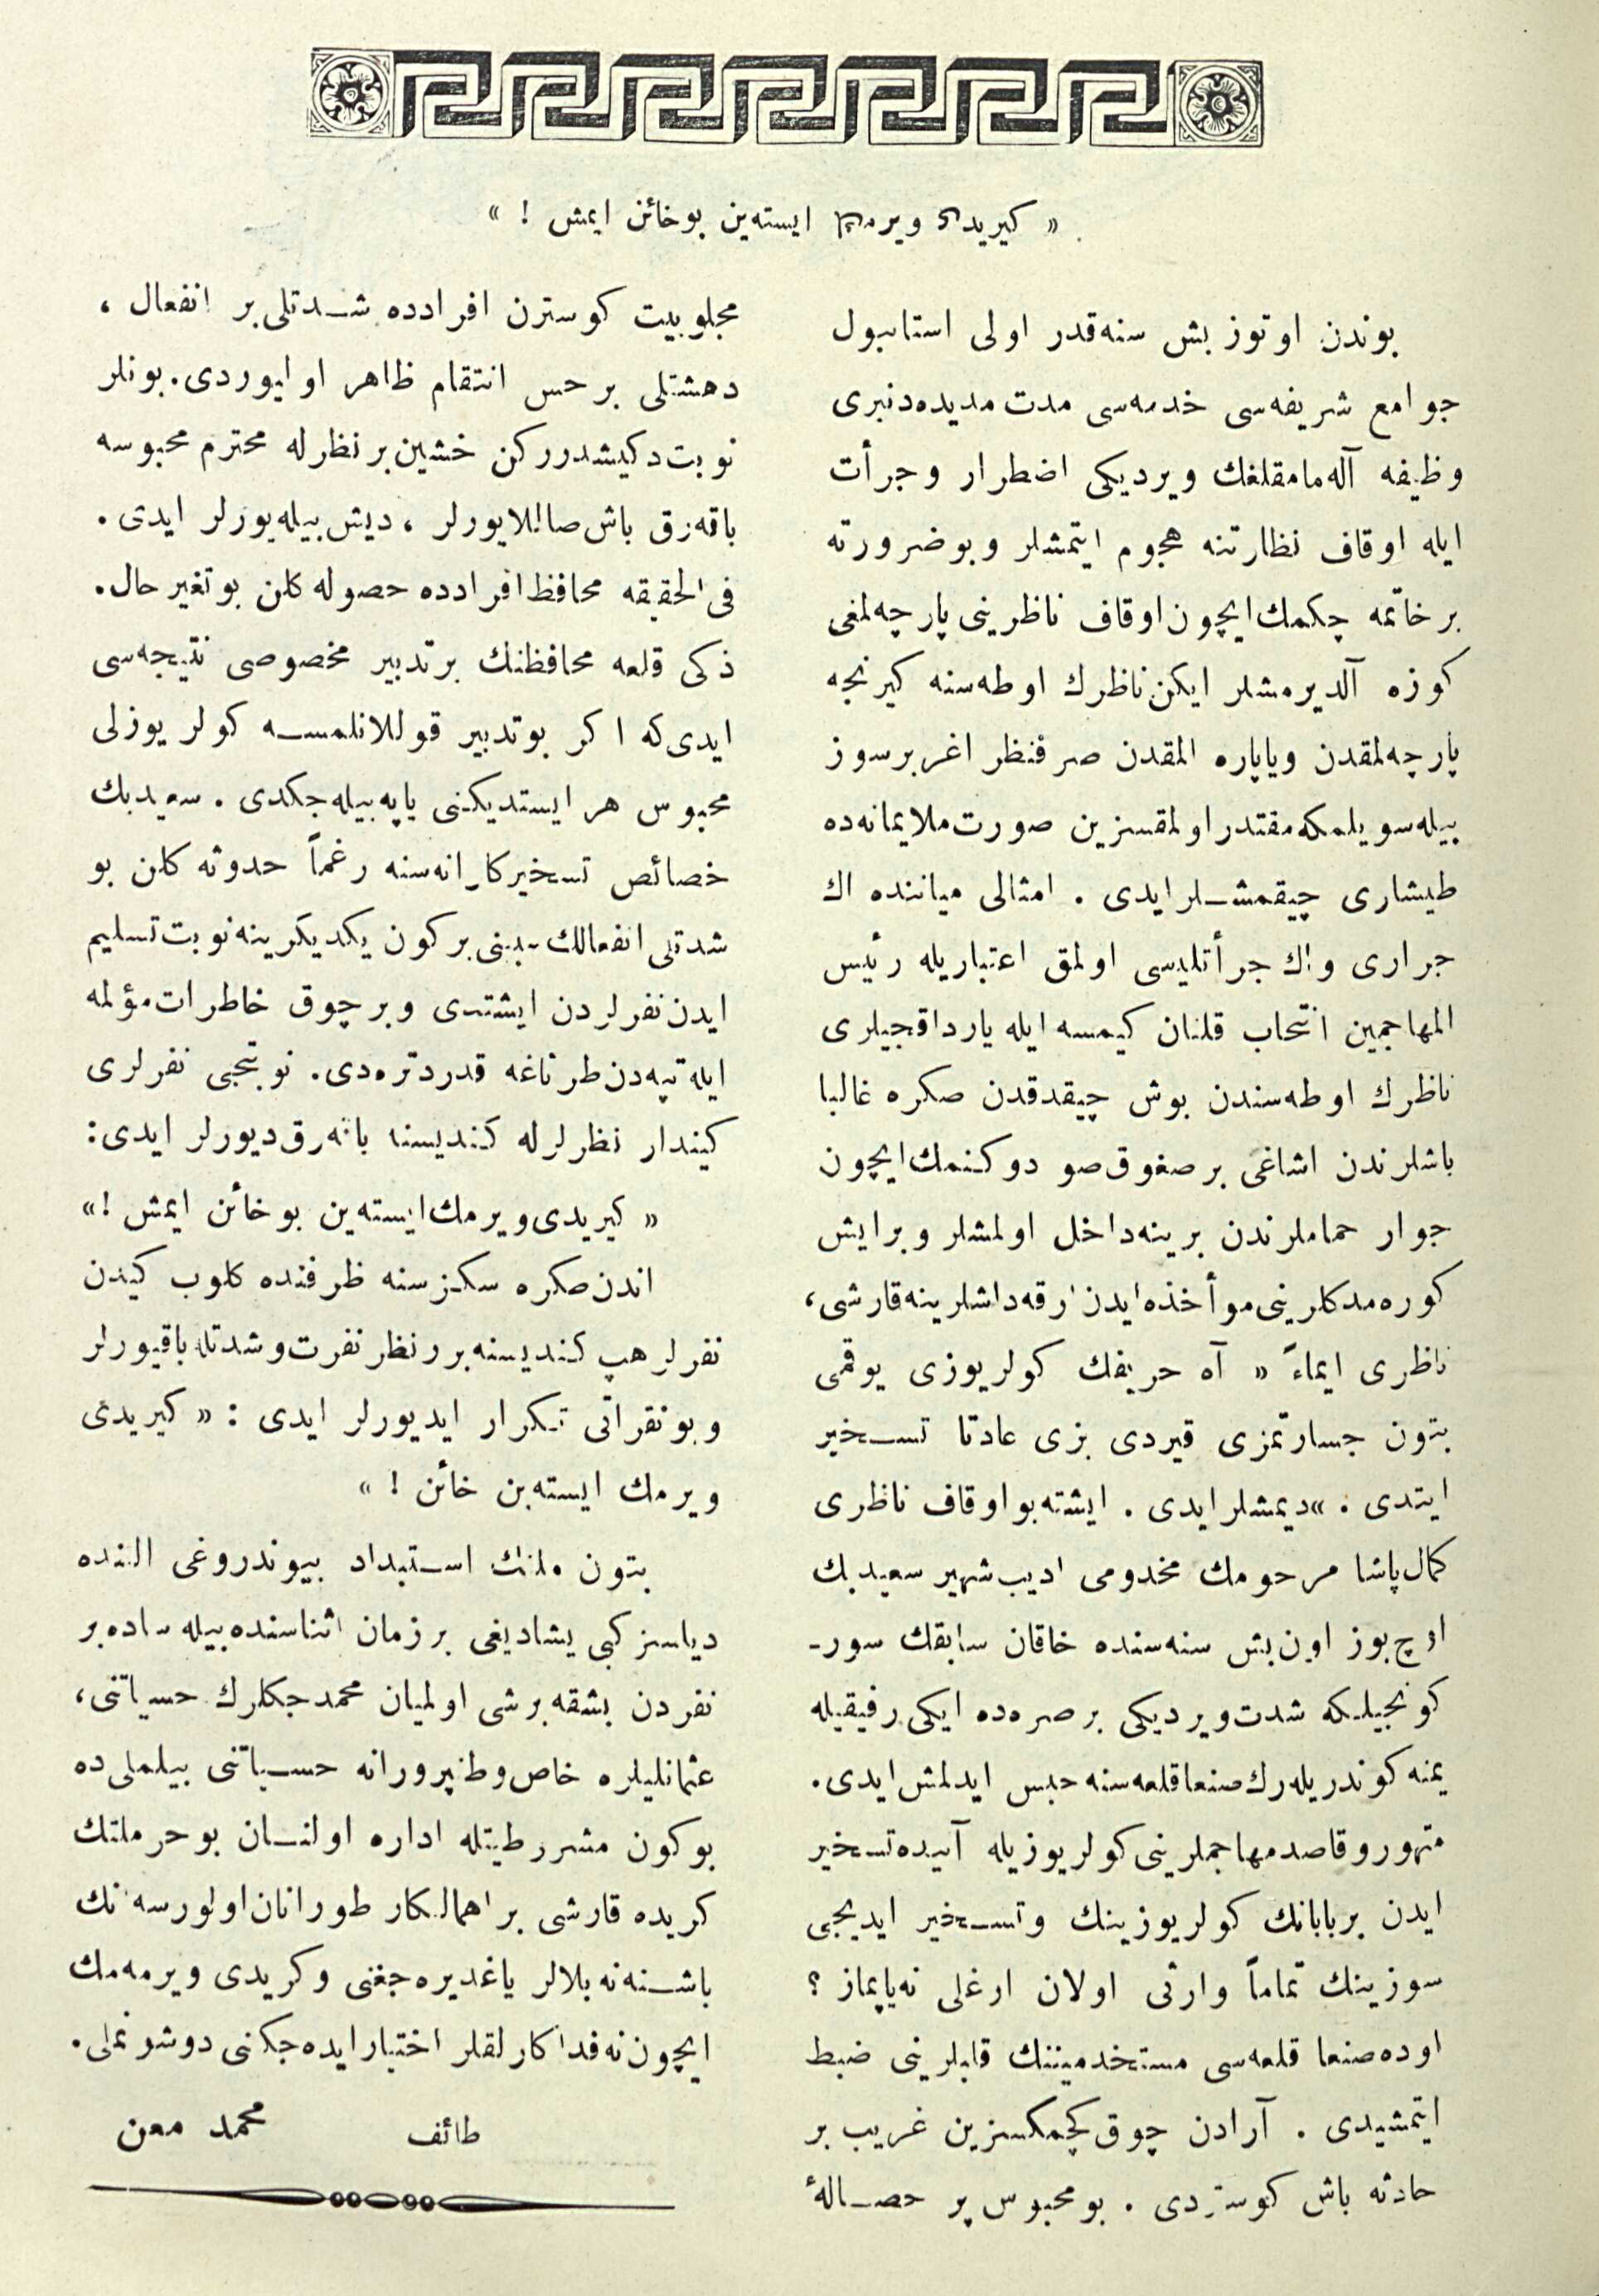 « كیریدی ویرمك ایسته‌ین بوخائن ایمش ! »
بوندن اوتوز بش سنه‌قدر اولی استانبول
جوامع شریفه‌سی خدمه‌سی مدت مدیده‌دنبری
وظیفه آله‌مامقلغك ویردیكی اضطرار وجرأت
ایله اوقاف نظارتنه هجوم ایتمشلر وبوضرورته
برخاتمه چكمك ایچون اوقاف ناظرینی پارچه‌لمغی
كوزه آلدیرمشلر ایكن ناظرك اوطه‌سنه كیرنجه
پارچه‌لمقدن ویاپاره المقدن صرفنظر اغر برسوز
بیله سویلمكه مقتدر اولمقسزین صورت ملایمانه‌ده
طیشاری چیقمشلر ایدی . امثالی میاننده اك
جراری واك جرأتلیسی اولمق اعتباریله رئیس
المهاجمین انتخاب قلنان كیمسه ایله یارداقجیلری
ناظرك اوطه‌سندن بوش چیقدقدن صكره غالبا
باشلرندن اشاغی برصغوق صو دوكنمك ایچون
جوار حماملرندن برینه داخل اولمشلر وبرایش
كوره‌مدكلرینی موأخذه ایدن ارقه‌داشلرینه قارشی،
ناظری ایماءً « آه حریفك كولر یوزی یوقمی
بتون جسارتمزی قیردی بزی عادتا تسخیر
ایتدی . » دیمشلر ایدی . ایشته بو اوقاف ناظری
كمال پاشا مرحومك مخدومی ادیب شهیر سعید بك
اوچ یوز اون بش سنه‌سنده خاقان سابقك سور-
كونجیلكه شدت ویردیكی برصره‌ده ایكی رفیقیله
یمنه كوندریله‌رك صنعا قلعه‌سنه حبس ایدلمش ایدی.
متهور وقاصد مهاجملرینی كولر یوزیله آنیده تسخیر
ایدن بربابانك كولر یوزینك وتسخیر ایدیجی
سوزینك تماماً وارثی اولان اوغلی نه‌یاپماز ؟
اوده صنعا قلعه‌سی مستخدمیننك قلبلرینی ضبط
ایتمشیدی . آرادن چوق كچمكسزین غریب بر
حادثه باش كوستردی . بومحبوس پر خصالهٔ
مجلوبیت كوسترن افرادده شدتلی بر انفعال ،
دهشتلی بر حس انتقام ظاهر اولیوردی. بونلر
نوبت دكیشدرركن خشین برنظرله محترم محبوسه
باقه‌رق باش صاللایورلر ، دیش بیله‌یورلر ایدی .
فی الحقیقه محافظ افرادده حصوله كلن بوتغیر حال.
ذكی قلعه محافظنك برتدبیر مخصوصی نتیجه‌سی
ایدی كه اكر بوتدبیر قوللانلمسه كولر یوزلی
محبوس هر ایستدیكنی یاپه‌بیله‌جكدی . سعیدبك
خصائص تسخیركارانه‌سنه رغماً حدوثه كلن بو
شدتلی انفعالك سببنی بركون یكدیكرینه نوبت تسلیم
ایدن نفرلردن ایشتدی وبرچوق خاطرات مؤلمه
ایله تپه‌دن طرناغه قدر دتره‌دی. نوبتجی نفرلری
كیندار نظرلرله كندیسنه باقه‌رق دیورلر ایدی:
« كیریدی ویرمك ایسته‌ین بوخائن ایمش !»
اندن صكره سكز سنه ظرفنده كلوب كیدن
نفرلر هپ كندیسنه بررنظر نفرت وشدتله باقیورلر
وبونقراتی تكرار ایدیورلر ایدی : « كیریدی
ویرمك ایسته‌ین خائن ! »
بتون ملتك استبداد بیوندروغی الننده
دیاسز كبی یشادیغی برزمان اثناسنده بیله ساده بر
نفردن بشقه برشی اولمیان محمدجكلرك حسیاتنی،
عثمانلیلره خاص وطنپرورانه حسیاتنی بیلملی‌ده
بوكون مشروطیتله اداره اولنان بوحر ملتك
كریده قارشی بر اهمالكار طورانان اولورسه انك
باشنه نه بلالر یاغدیره‌جغنی وكریدی ویرمه‌مك
ایچون نه فداكارلقلر اختیار ایده‌جكنی دوشونملی.
طائف     محمد معن